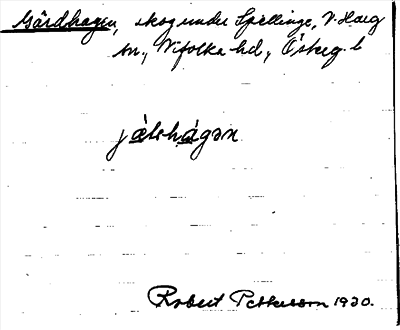 Gärdhagen, skog under Spellinge, V. Harg
sn., Vifolka hd, Österg. l
Robert Pettersson 1920.